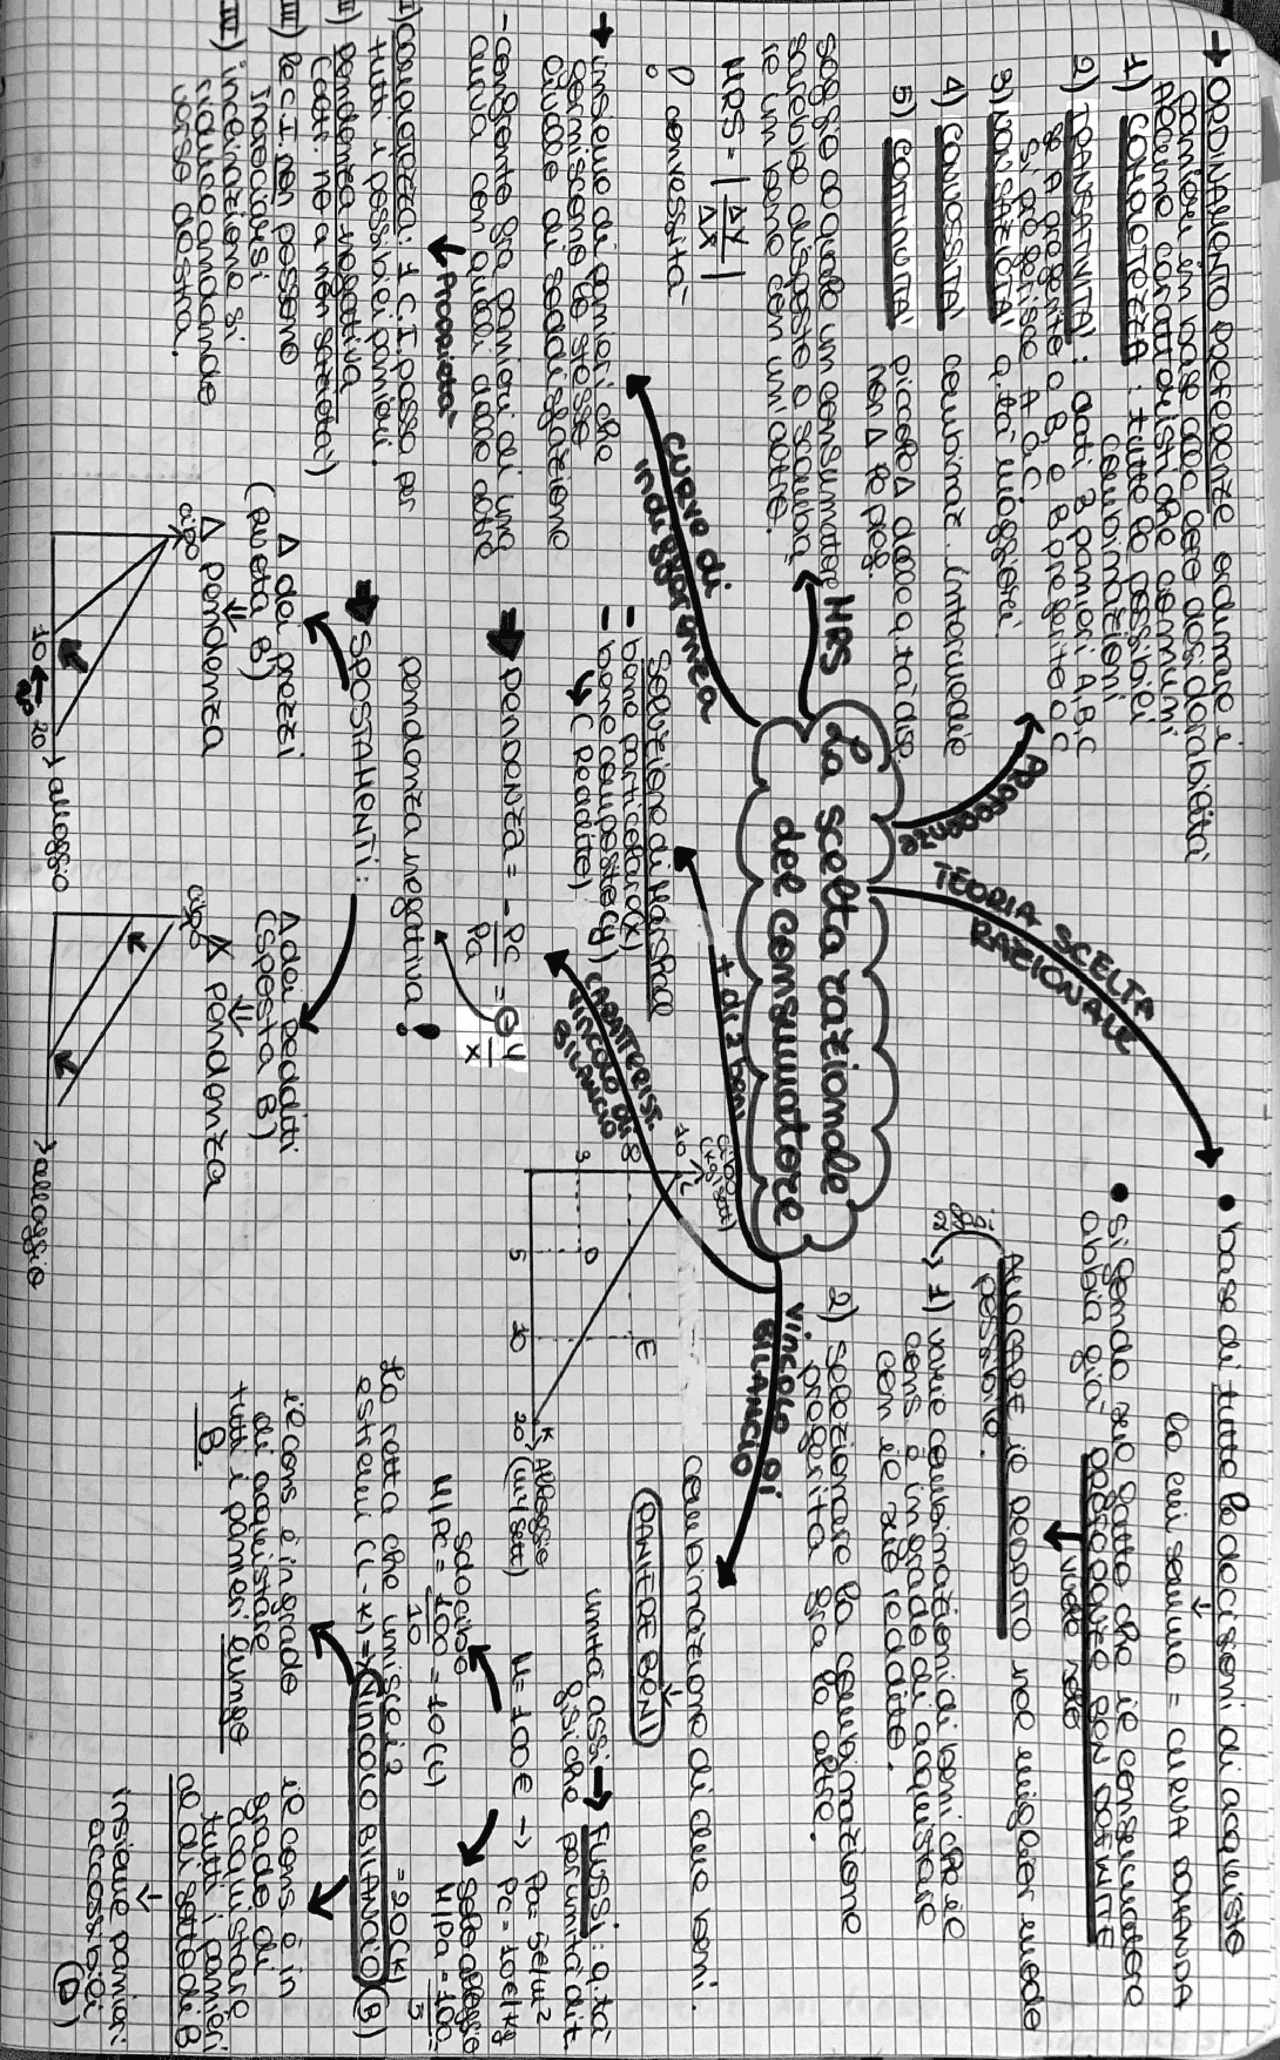 La scelta razionale
del consumatore
TEORIA SCELTA
RAZIONALE
• base di tutte le decisioni di acquisto
↓
la cui somma = CURVA DOMANDA
• si fonda sul fatto che il consumatore
abbia già PREFERENZE BEN DEFINITE
vuole solo
ALLOCARE il REDDITO nel miglior modo
possibile.
2 fasi
→ 1) varie combinazioni di beni che il
cons è in grado di acquistare
con il suo reddito.
2) selezionare la combinazione
preferita fra le altre.
PREFERENZE
→ ORDINAMENTO PREFERENZE ordinare i
panieri in base alla loro desiderabilità
Abbiamo caratteristiche comuni
1) COMPLETEZZA : tutte le possibili
combinazioni
2) TRANSITIVITA' : dati 3 panieri A,B,C
se A preferito a B, e B preferito a C
si preferisce A a C
3) NON SAZIETA' q.tà migliori
4) CONVESSITA' combinaz. intermedie
5) CONTINUITA' piccole Δ delle q.tà disp
non Δ le pref.
MRS
Saggio al quale un consumatore
sarebbe disposto a scambia
re un bene con un altro.
MRS = | ΔY / ΔX |
convessità
CURVE DI
INDIFFERENZA
→ insieme di panieri che
forniscono lo stesso
livello di soddisfazione
- confronto fra panieri di una
curva con quelli delle altre
Proprietà
I) completezza: 1 C.I. passa per
tutti i possibili panieri.
II) pendenza negativa
(dett. no a non sazietà)
III) le C.I. non possono
incrociarsi
IIII) inclinazione si
riduce andando
verso destra.
+ di 2 beni
Soluzione di Marshall
- bene particolare (x)
- bene composito (y)
↳ (reddito)
VINCOLO DI
BILANCIO
combinazione di due beni.
↓
PANIERE BENI
unità assi → FLUSSI: q.tà
fisiche per unità di t.
M = 100€ → Pa = 5€/m²
Pc = 10€/kg
Solo cibo
M/Pc = 100/10 = 10 (L)
Solo alloggio
M/Pa = 100/5 =
= 20 (K)
La retta che unisce i 2
estremi (L - K) = VINCOLO BILANCIO (B)
il cons è in grado
di acquistare
tutti i panieri lungo
B.
il cons è in
grado di
acquistare
tutti i panieri
al di sotto di B
↓
insieme panieri
accessibili
(D)
cibo
(kg/sett)
10
L
8
3
D
E
5
10
20
K
Alloggio
(m²/sett)
CARATTERIST.
VINCOLO DI
BILANCIO
→ PENDENZA = - Pc/Pa = ⊖ y/x
pendenza negativa!
→ SPOSTAMENTI:
Δ dei prezzi
(ruota B)
⇓
Δ pendenza
cibo
10 ← 20
alloggio
Δ dei redditi
(sposta B)
⇓
Δ pendenza
cibo
alloggio